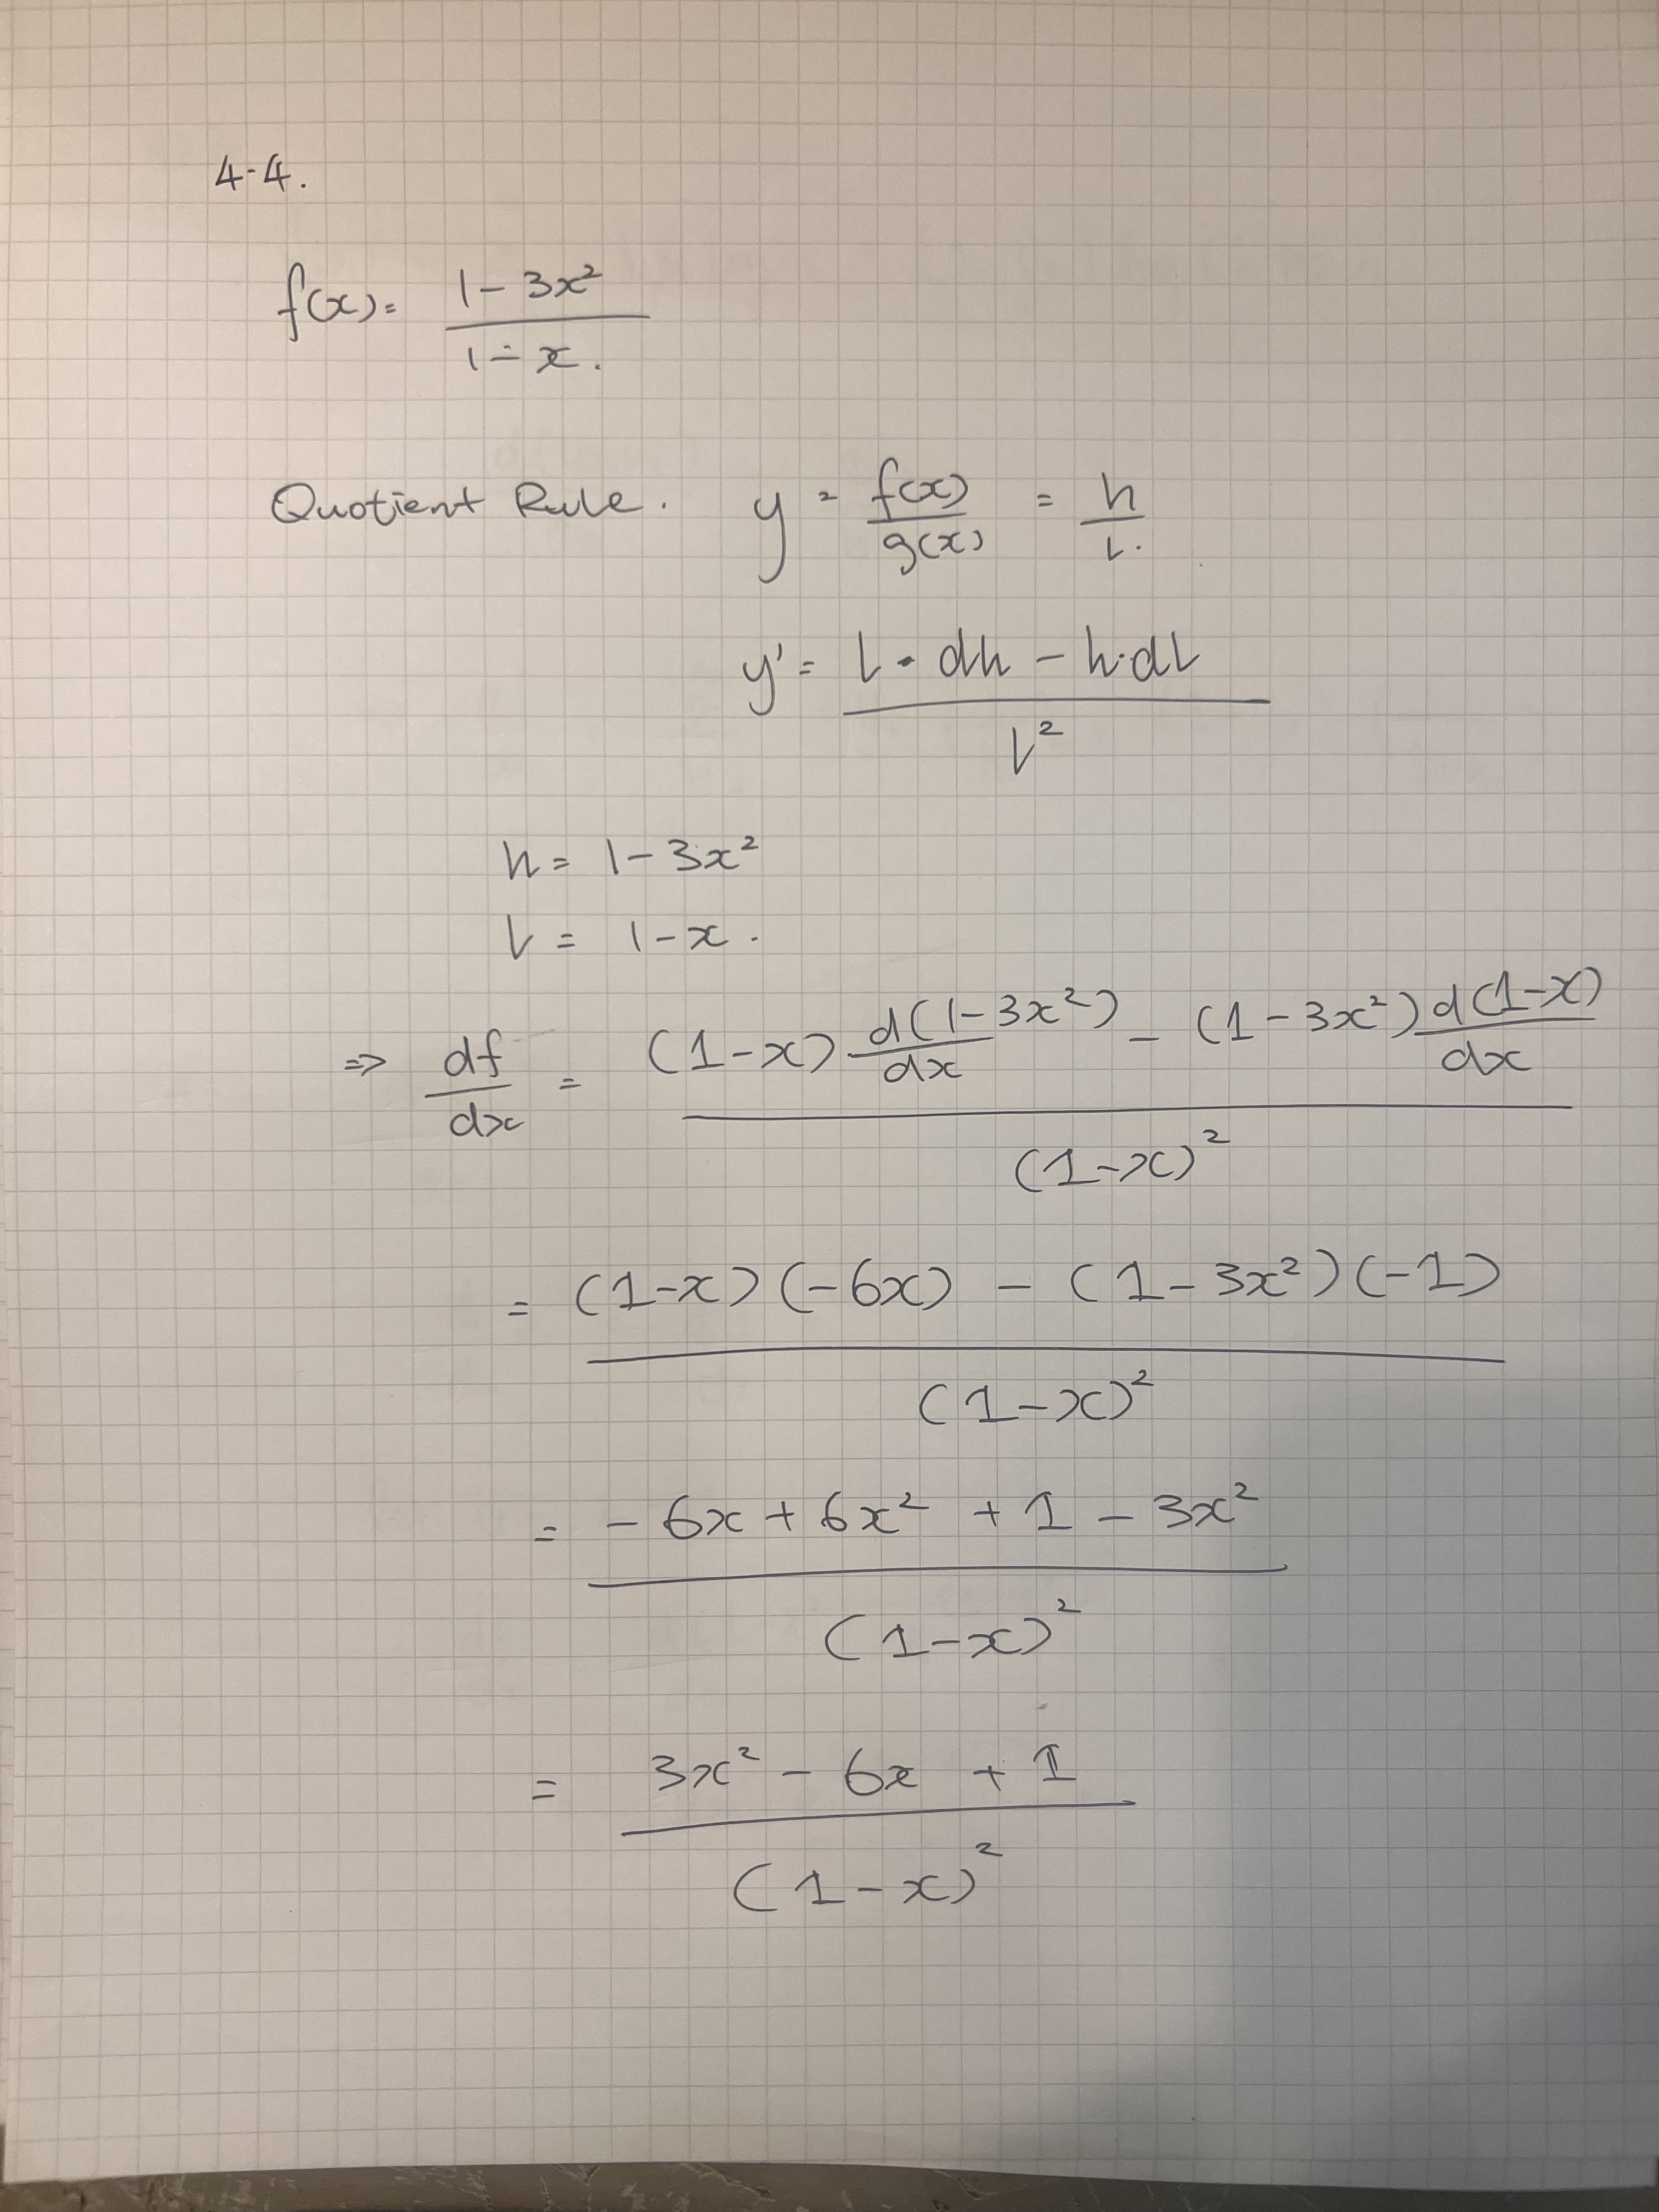 4-4.
f(x) = (1 - 3x²) / (1 - x).
Quotient Rule. y = f(x)/g(x) = h/l.
y' = (l · dh - h·dl) / l²
h = 1 - 3x²
l = 1 - x.
⇒ df/dx = ((1-x) d(1-3x²)/dx - (1-3x²) d(1-x)/dx) / (1-x)²
= ((1-x)(-6x) - (1-3x²)(-1)) / (1-x)²
= (-6x + 6x² + 1 - 3x²) / (1-x)²
= (3x² - 6x + 1) / (1-x)²